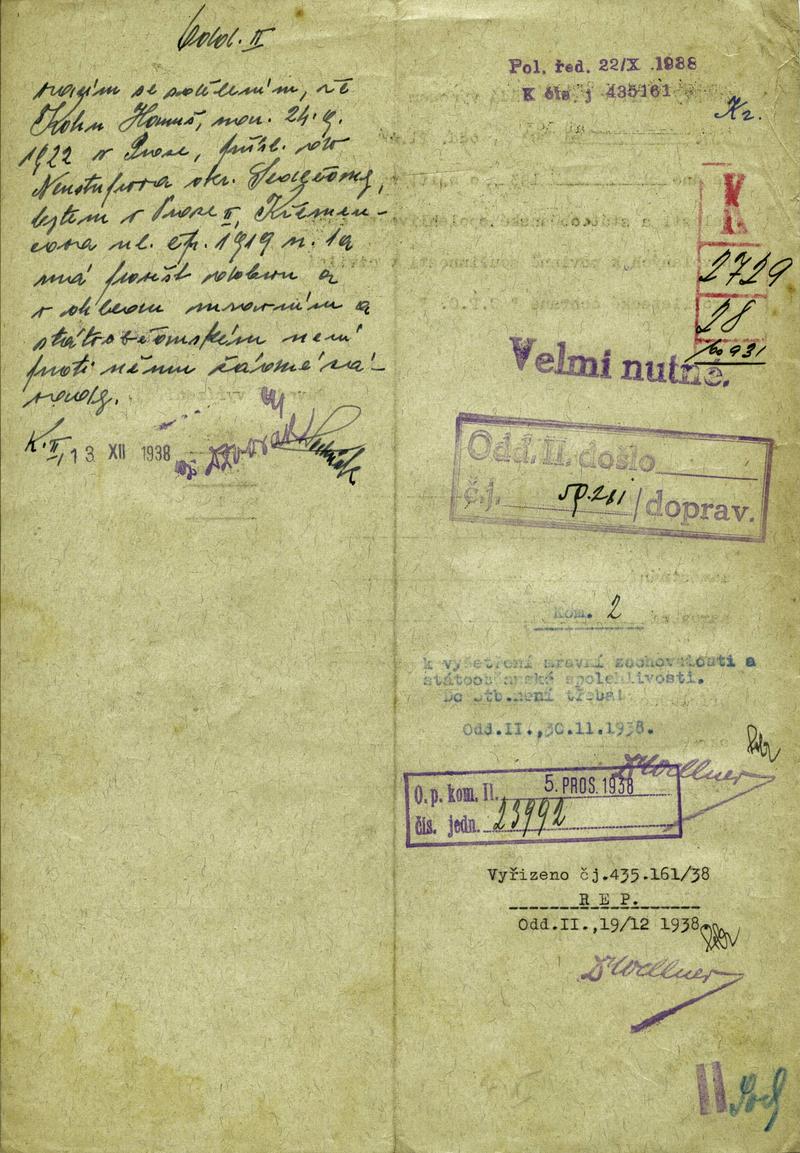 Odd. II
vracím se sdělením, že
Kohn Hanuš, nar. 24.9.
1922 v Praze, přísl. do
Neustupova okr. Sedlčany,
bytem v Praze II, Křemen-
cova ul. čp. 1919 n. 1a
má pověst dobrou a
v ohledu mravním a
státoobčanském není
proti němu žádné zá-
vady.
K. II, 13 XII 1938
Dvořák
Pol. řed. 22/X .1938
K čís j 435161
Kr.
K
2729
28
Velmi nutné.
Odd. II. došlo
č.j. /doprav.
Kom. 2
k vyšetření mravní zachovalosti a
státoobčanské spolehlivosti.
Do stb.není třeba!
Odd.II.,30.11.1938.
DrWollner
O. p. kom. II. 5. PROS. 1938
čís. jedn. 23992
Vyřízeno čj.435.161/38
R E P.
Odd.II.,19/12 1938
DrWollner
II